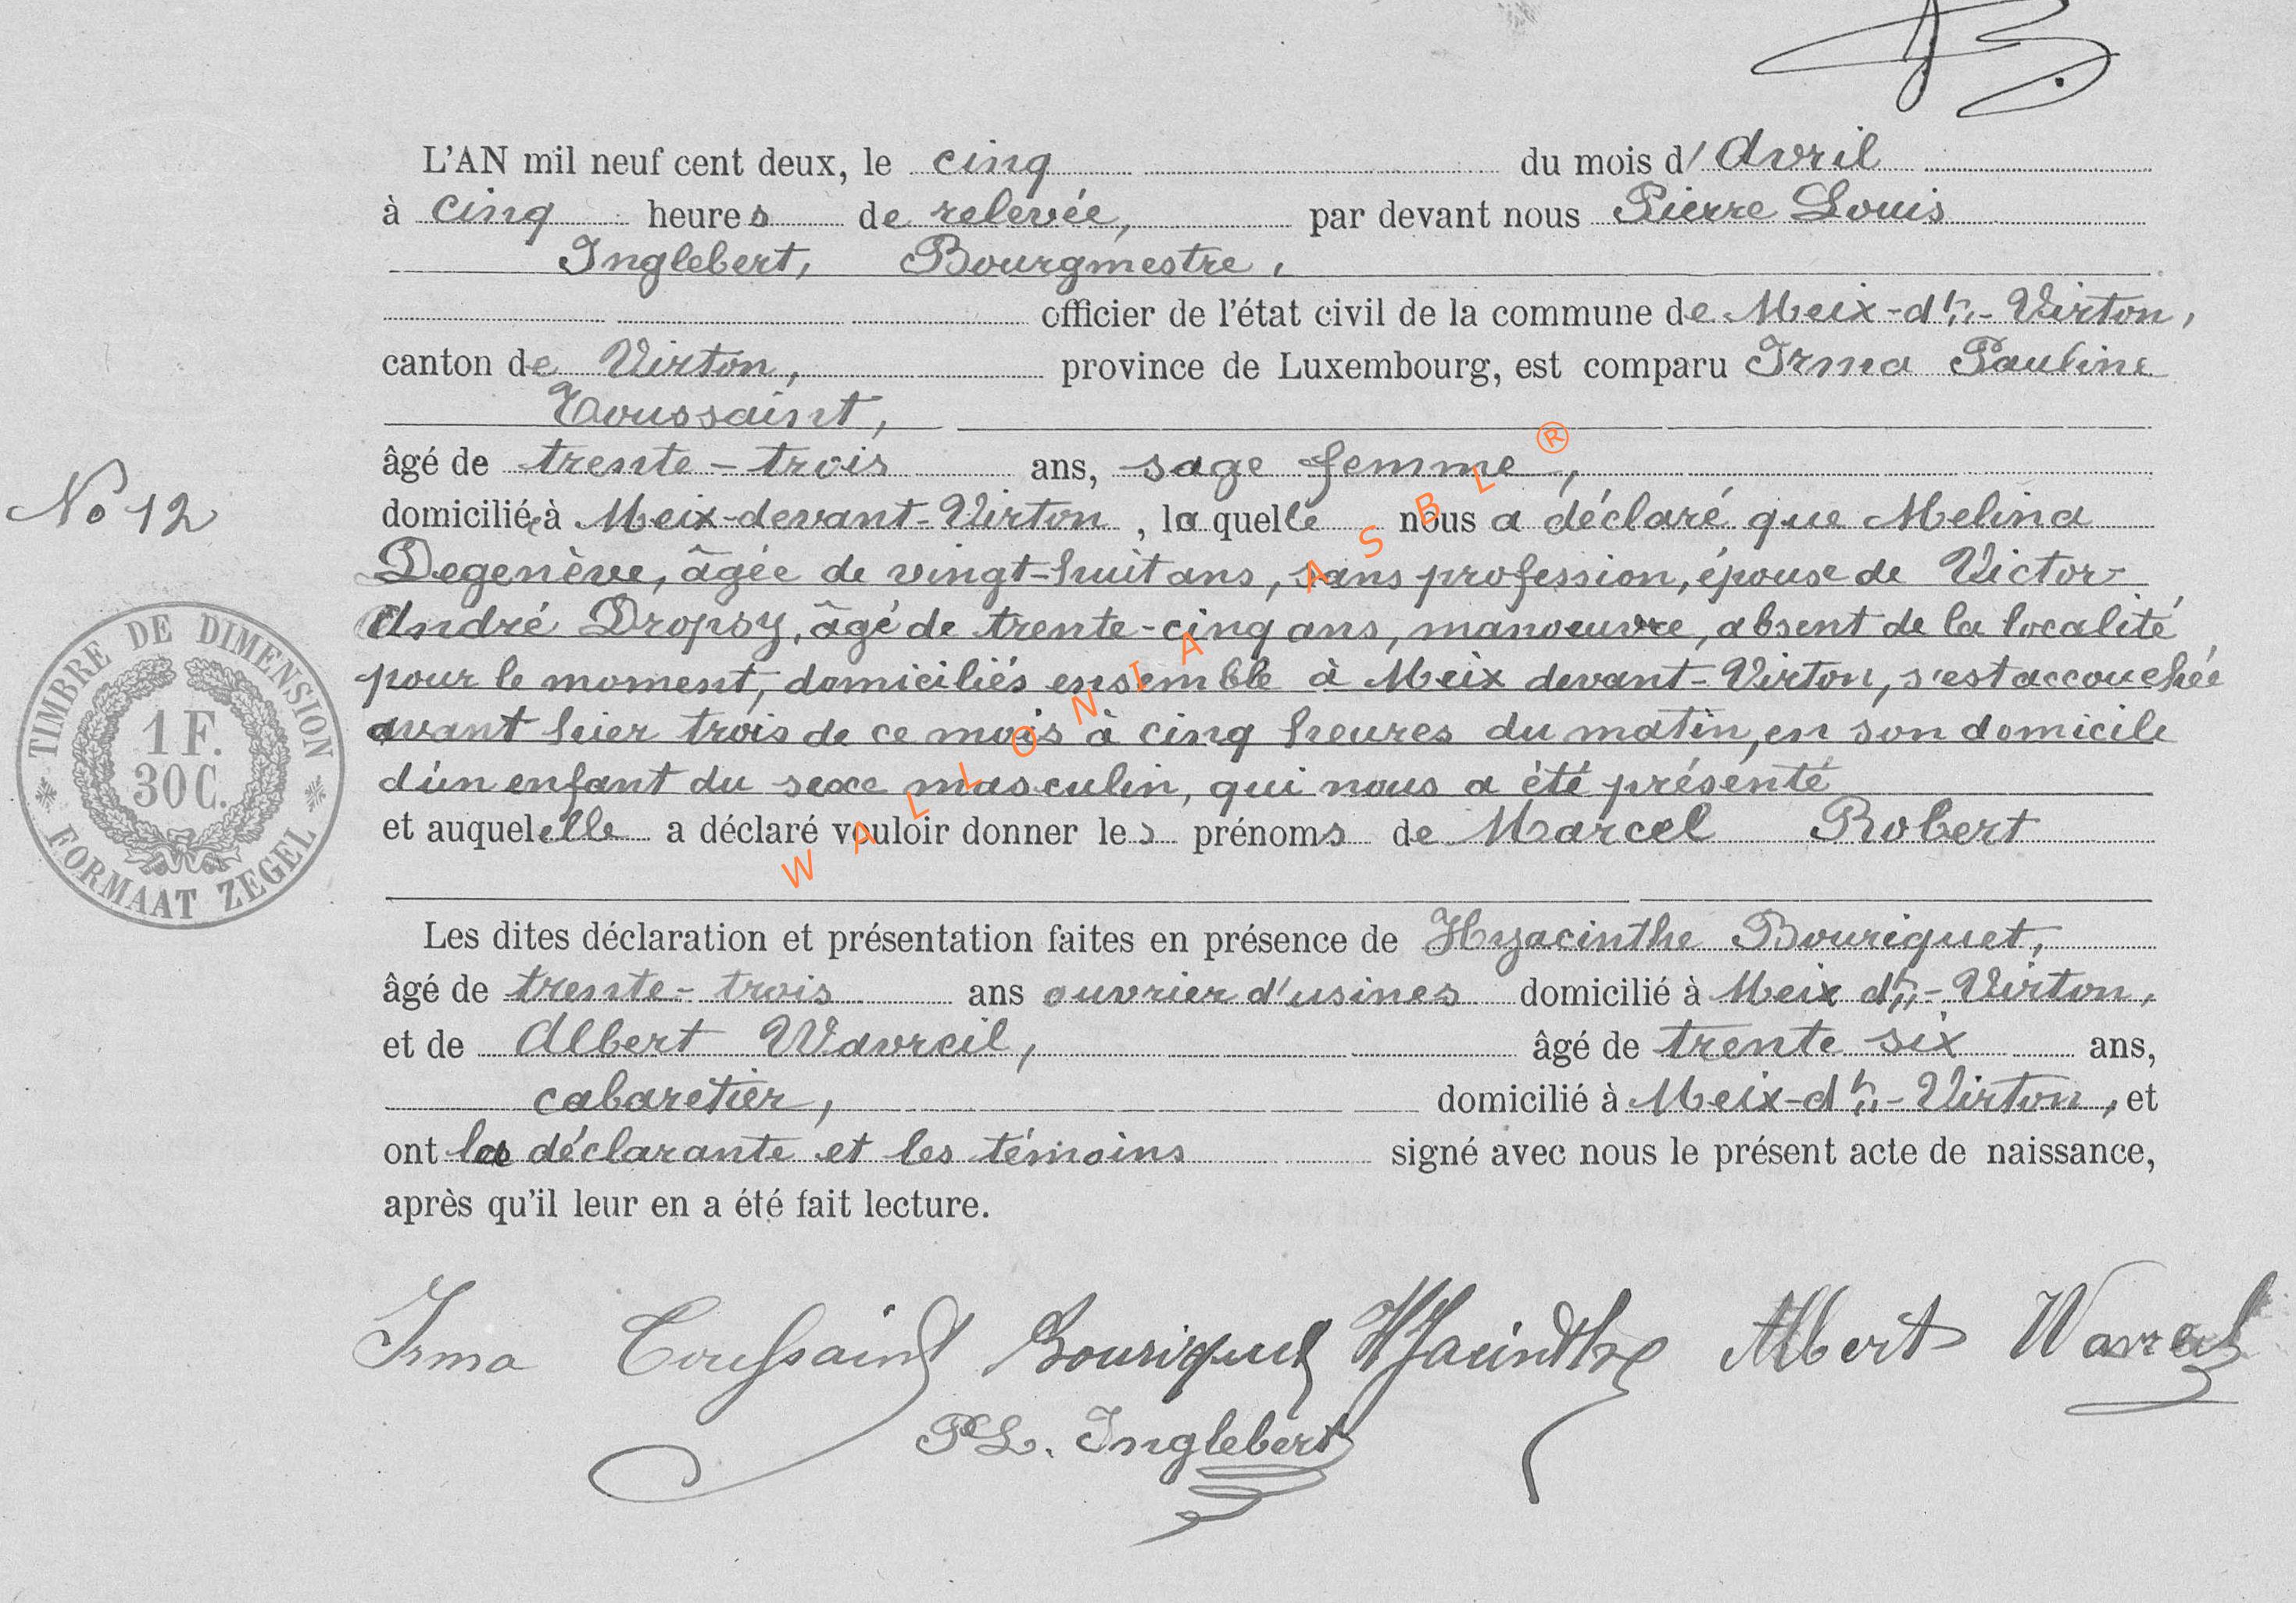 B.
L'AN mil neuf cent deux, le cinq du mois d'Avril
à cinq heures de relevée, par devant nous Pierre Louis
Inglebert, Bourgmestre,
officier de l'état civil de la commune de Meix-dt-Virton,
canton de Virton, province de Luxembourg, est comparu Irma Pauline
Toussaint,
âgé de trente-trois ans, sage femme,
No 12
domiciliée à Meix-devant-Virton, laquelle nous a déclaré que Melina
Degenève, âgée de vingt-huit ans, sans profession, épouse de Victor-
André Dropsy, âgé de trente-cinq ans, manoeuvre, absent de la localité
pour le moment, domiciliés ensemble à Meix devant-Virton, s'est accouchée
avant hier trois de ce mois à cinq heures du matin, en son domicile
d'un enfant du sexe masculin, qui nous a été présenté
et auquel elle a déclaré vouloir donner les prénoms de Marcel Robert
Les dites déclaration et présentation faites en présence de Hyacinthe Bouriquet,
âgé de trente-trois ans ouvrier d'usines domicilié à Meix dt-Virton,
et de Albert Wavreil, âgé de trente six ans,
cabaretier, domicilié à Meix-dt-Virton, et
ont la déclarante et les témoins signé avec nous le présent acte de naissance,
après qu'il leur en a été fait lecture.
Irma Toussaint Bouriquet Hyacinthe Albert Wavreil
P L. Inglebert
TIMBRE DE DIMENSION
1 F.
30 C.
FORMAAT ZEGEL
WALLONIA ASBL ®